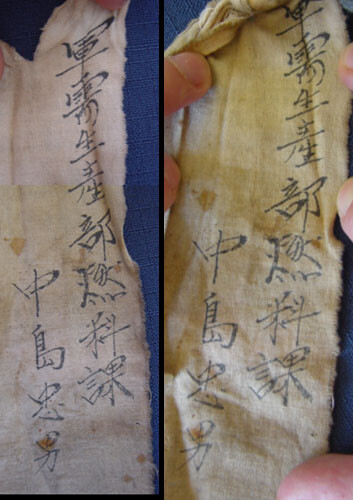 軍需生産部燃料課
中島忠男
軍需生産部燃料課
中島忠男